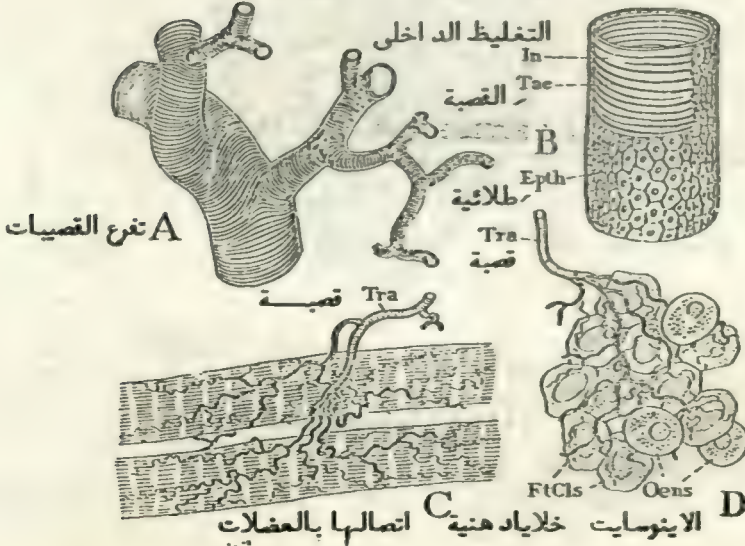 التغليظ الداخلى
In
Tae
القصبة
B
Epth
طلائية
A تفرع القصيبات
Tra
قصبة
قصبة
Tra
FtCls
Oens
D
C
الاينوسايت خلايا دهنية
اتصالها بالعضلات